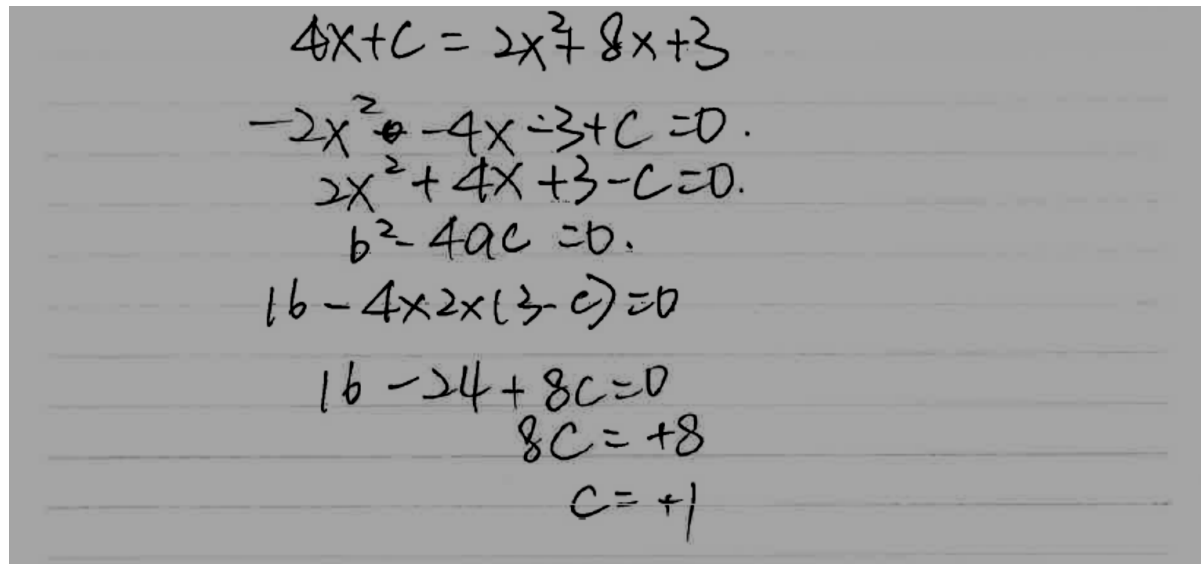 4x+c = 2x²+8x+3
-2x² -4x-3+c=0.
2x²+4x+3-c=0.
b²-4ac=0.
16-4×2×(3-c)=0
16-24+8c=0
8c=+8
c=+1